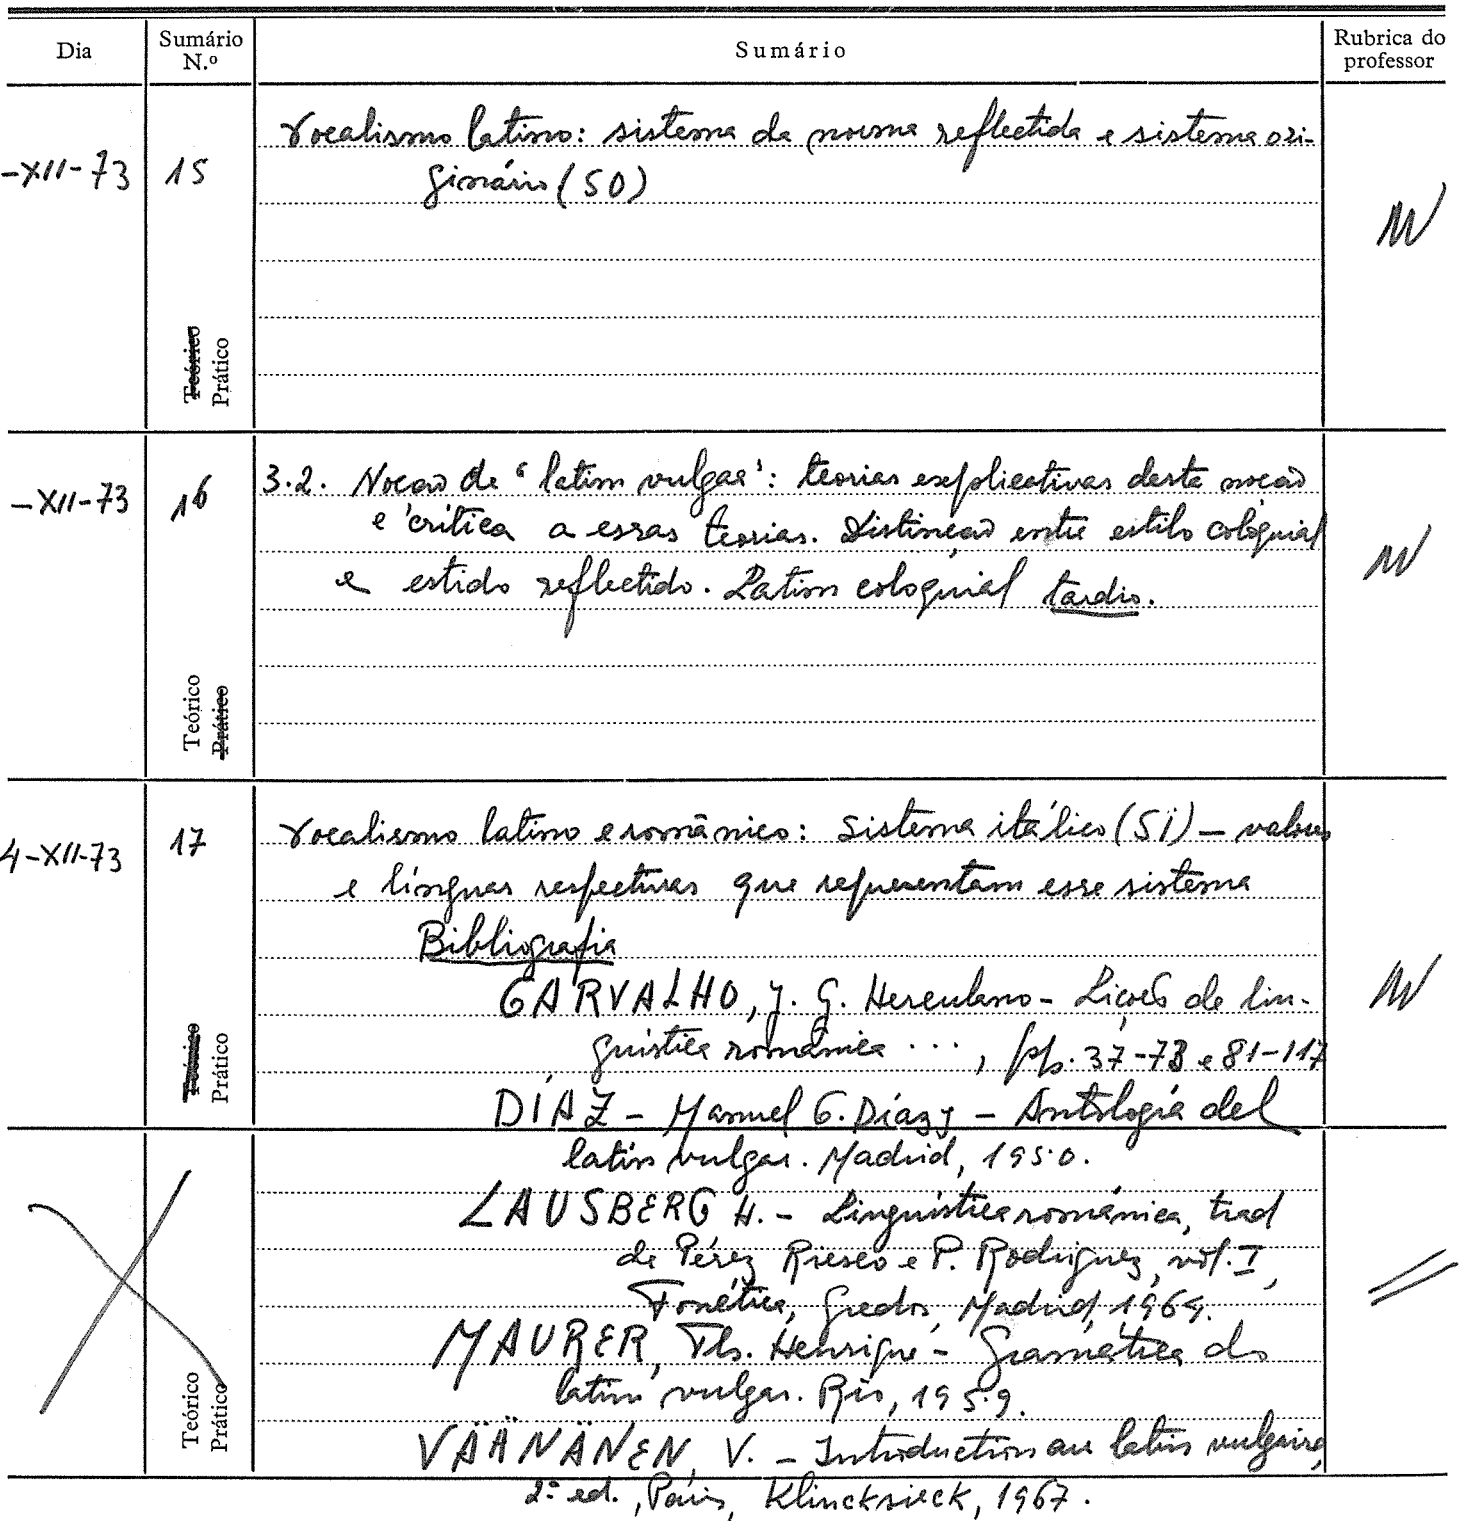 Dia
Sumário N.º
Sumário
Rubrica do professor
-XII-73
15
Vocalismo latino: sistema da norma reflectida e sistema ori-
ginário (SO)
Teórico
Prático
-XII-73
16
3.2. Noção de 'latim vulgar': teorias explicativas desta noção
e crítica a essas teorias. Distinção entre estilo coloquial
e estido reflectido. Latim coloquial tardio.
Teórico
Prático
4-XII-73
17
Vocalismo latino e românico: Sistema itálico (SI) — valores
e línguas respectivas que representam esse sistema
Bibliografia
CARVALHO, J. G. Herculano - Lições de lin-
guística românica ..., pp. 37-73 e 81-117
DÍAZ - Manuel C. Díaz y - Antología del
latín vulgar. Madrid, 1950.
LAUSBERG H. - Linguística románica, trad
de Pérez Riesco e P. Rodriguez, vol. I,
Fonética, Gredos, Madrid, 1964.
MAURER, Th. Henrique - Gramática do
latim vulgar. Rio, 1959.
VÄÄNÄNEN, V. - Introduction au latin vulgaire,
2ª ed., Paris, Klincksieck, 1967.
Teórico
Prático